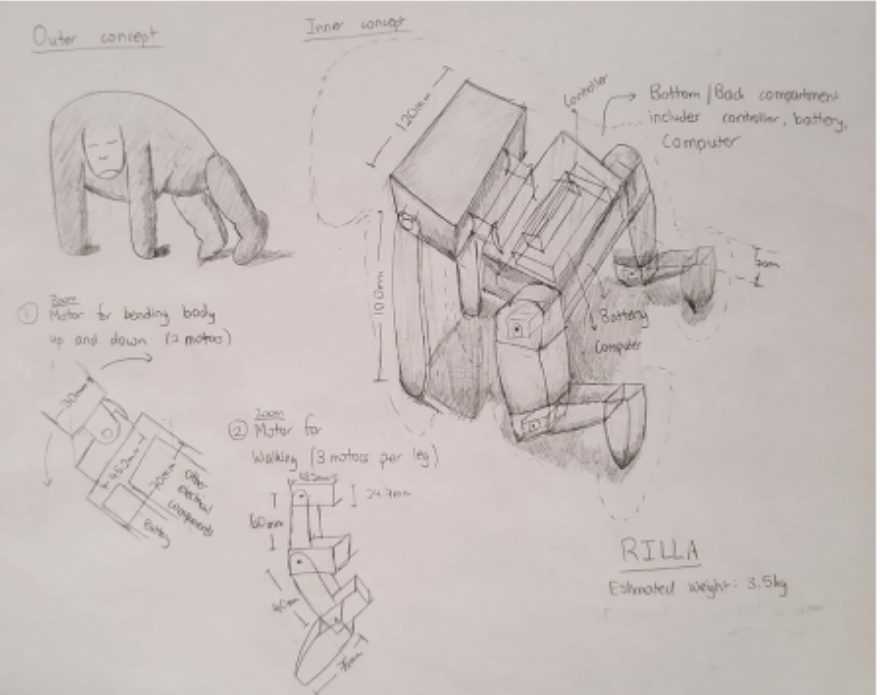 Outer concept
Inner concept
120mm
Controller
Bottom/Back compartment
includes controller, battery,
Computer
100mm
Battery
Computer
① Zoom
Motor for bending body
up and down (2 motors)
30mm
45.2mm
70mm
Other
electrical
components
Battery
② Zoom
Motor for
Walking (3 motors per leg)
24.7mm
60mm
40mm
RILLA
Estimated weight: 3.5kg